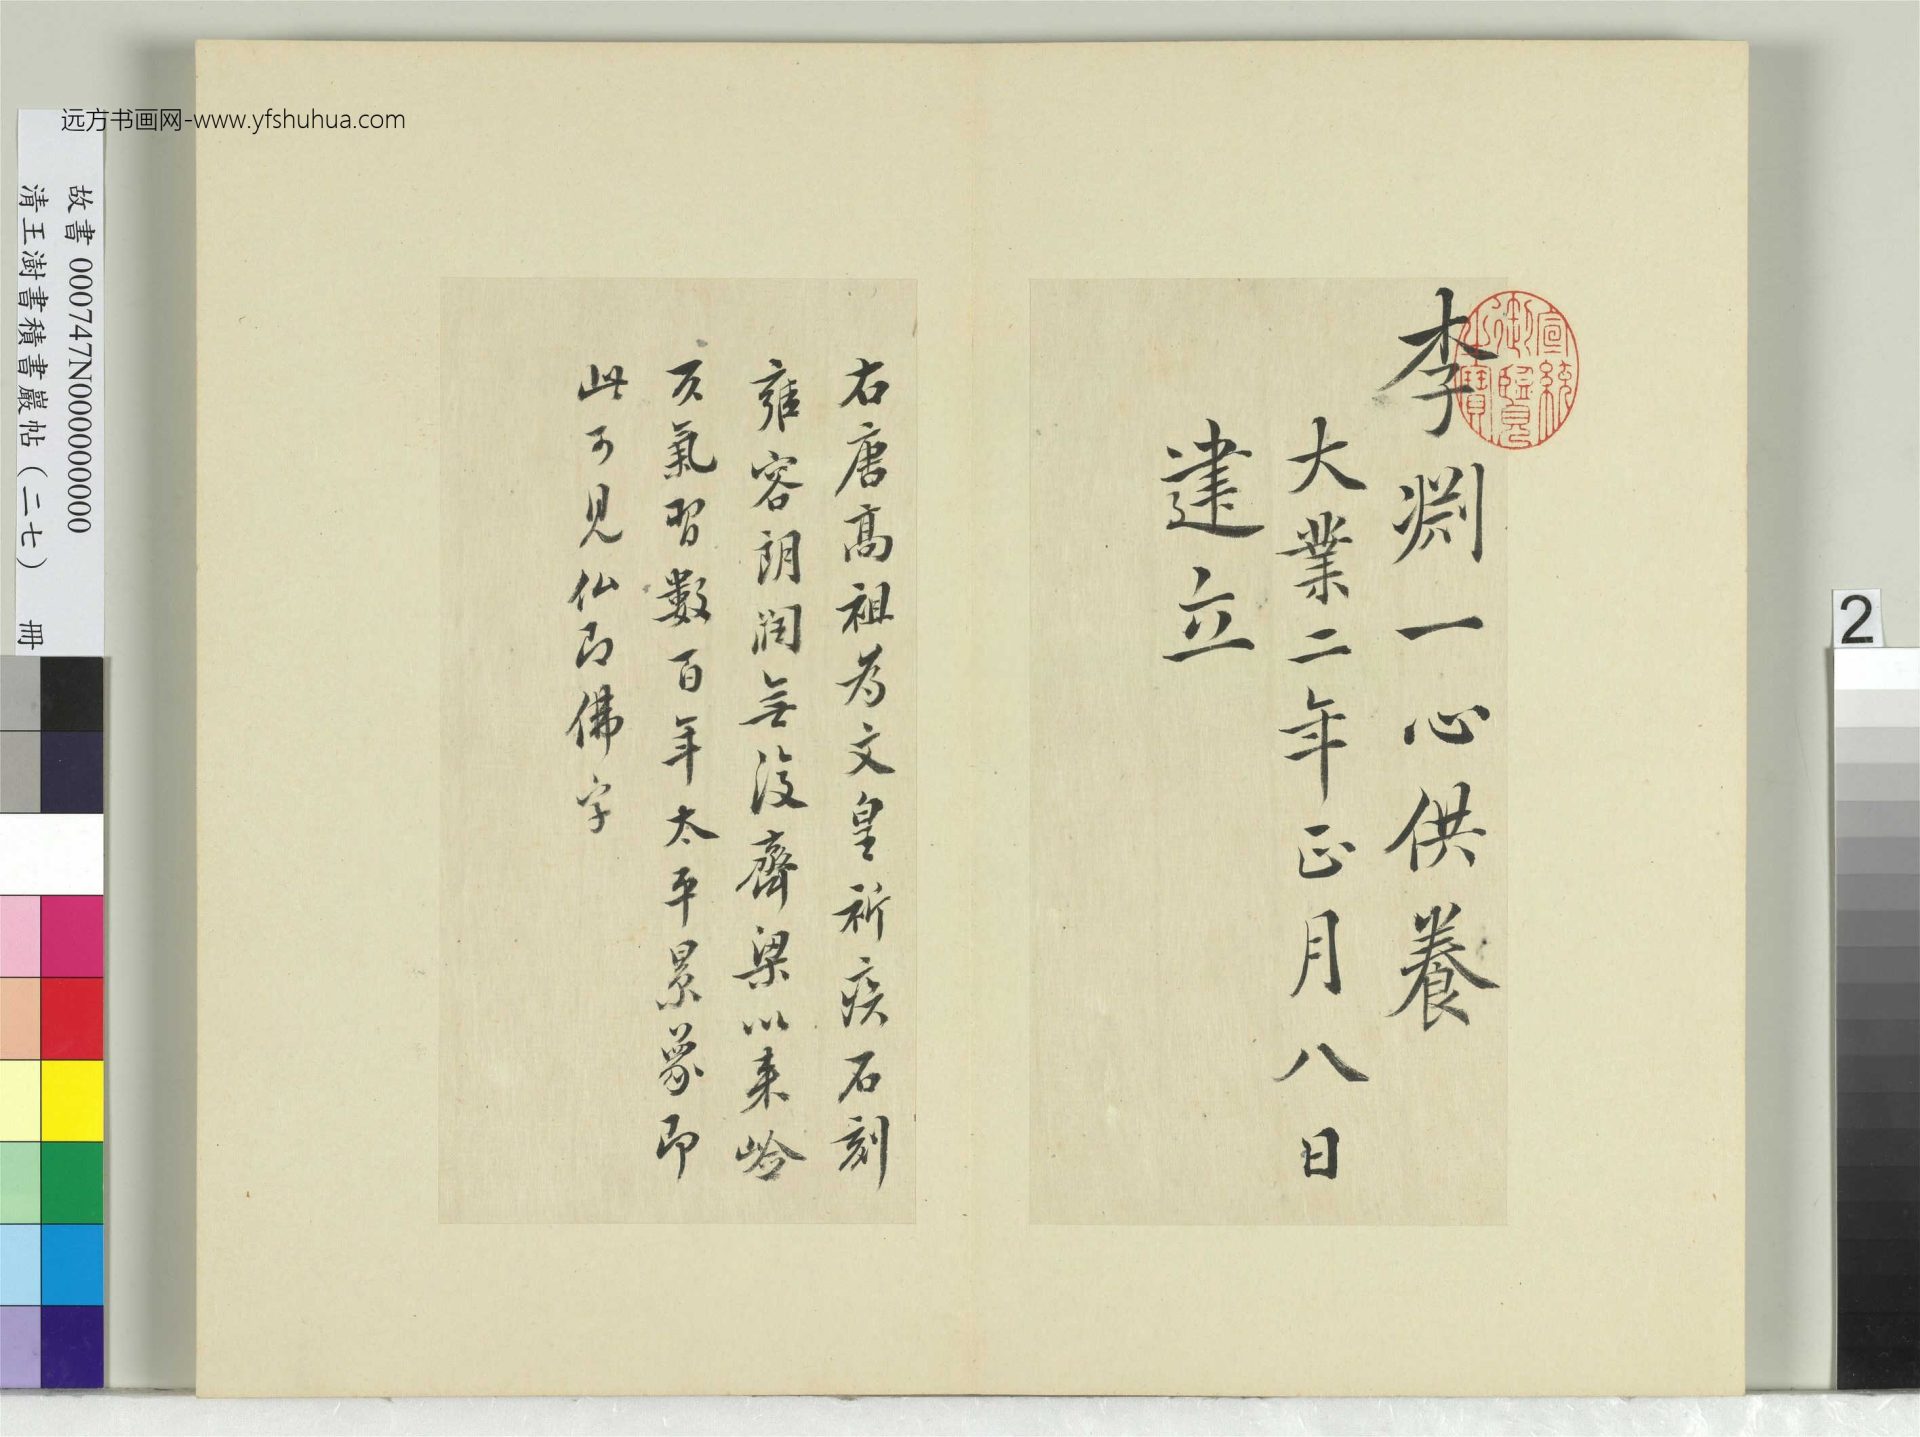 远方书画网-www.yfshuhua.com
故書 000747N000000000
清王澍書積書巖帖（二七） 冊
2
宣統
御覽
之寶
李渊一心供養
大業二年正月八日
建立
右唐高祖為文皇祈疾石刻
雍容朗潤無復齊梁以来
亥氣習數百年太平景象即
此可見仏即佛字